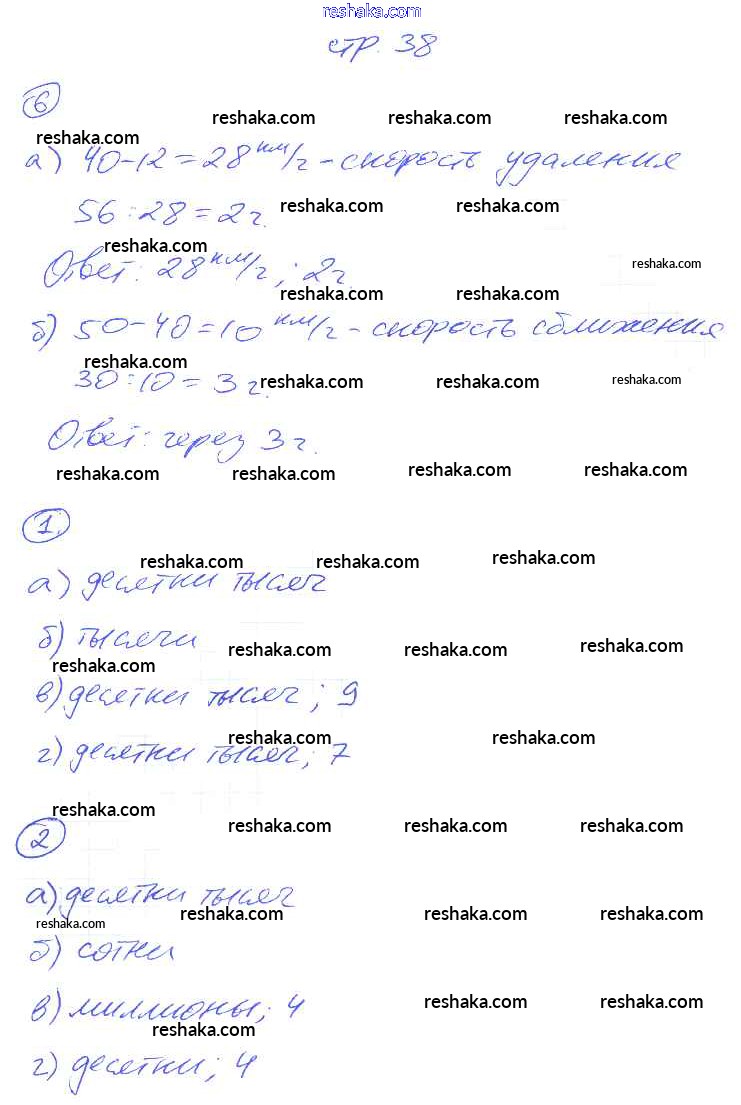 reshaka.com
стр. 38
6
reshaka.com reshaka.com reshaka.com
reshaka.com
а) 40-12=28 км/г - скорость удаления
56:28=2г. reshaka.com reshaka.com
reshaka.com
Ответ: 28 км/г; 2г. reshaka.com
reshaka.com reshaka.com
б) 50-40=10 км/г - скорость сближения
reshaka.com
30:10=3г. reshaka.com reshaka.com reshaka.com
Ответ: через 3г.
reshaka.com reshaka.com reshaka.com reshaka.com
1
reshaka.com reshaka.com reshaka.com
а) десятки тысяч
б) тысячи reshaka.com reshaka.com reshaka.com
reshaka.com
в) десятки тысяч; 9
reshaka.com reshaka.com
г) десятки тысяч; 7
reshaka.com reshaka.com reshaka.com reshaka.com
2
а) десятки тысяч
reshaka.com reshaka.com reshaka.com
reshaka.com
б) сотни
в) миллионы; 4 reshaka.com reshaka.com
reshaka.com
г) десятки; 4